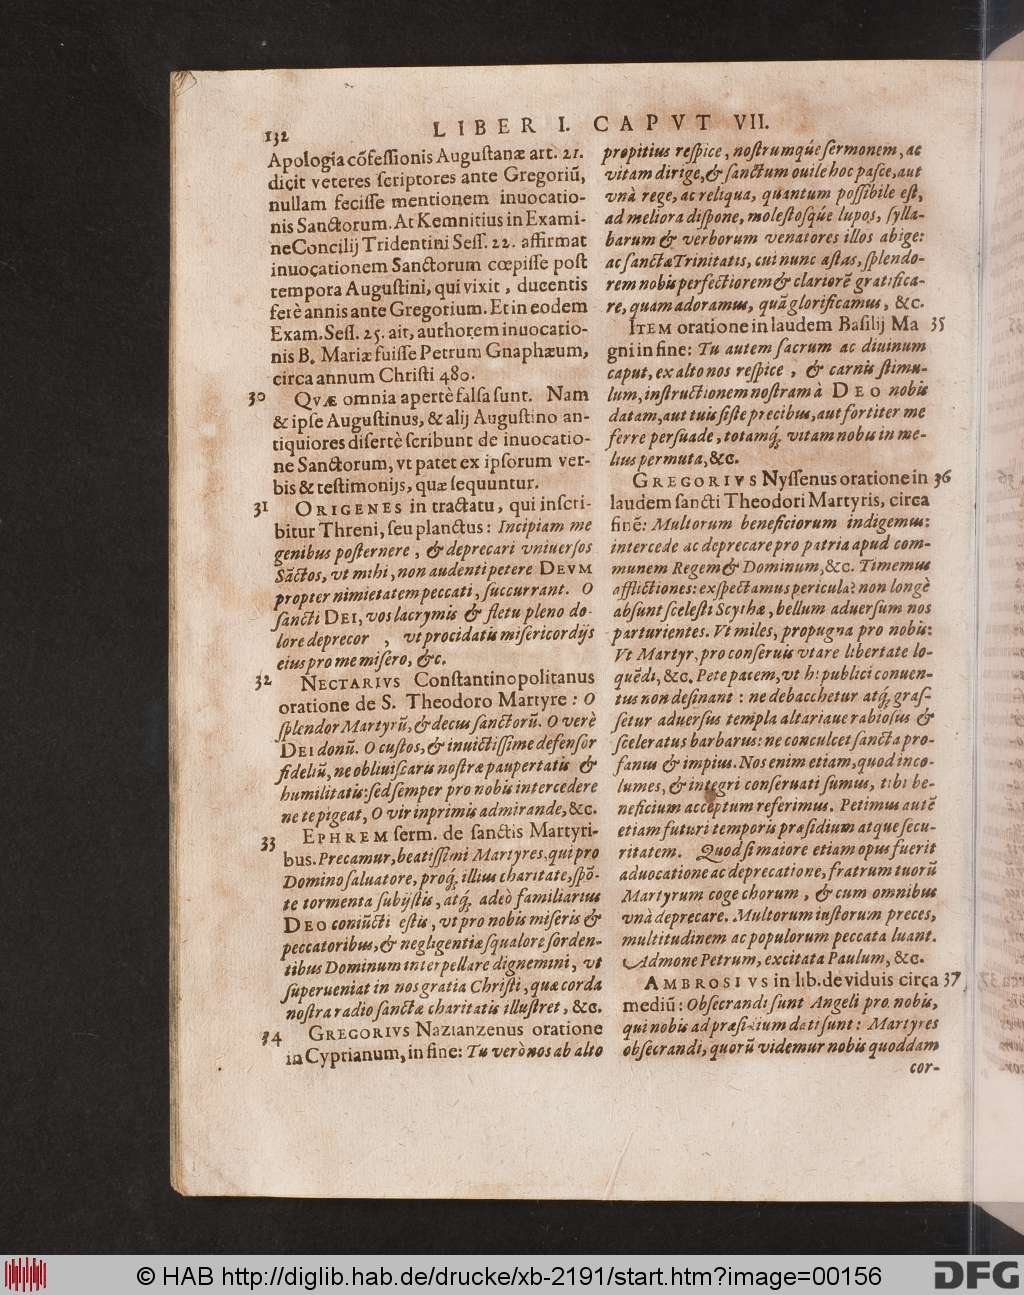 132
LIBER I. CAPVT VII.
Apologia cõfessionis Augustanæ art. 21.
dicit veteres scriptores ante Gregoriũ,
nullam fecisse mentionem inuocatio-
nis Sanctorum. At Kemnitius in Exami-
ne Concilij Tridentini Sess. 22. affirmat
inuocationem Sanctorum cœpisse post
tempora Augustini, qui vixit, ducentis
ferè annis ante Gregorium. Et in eodem
Exam. Sess. 25. ait, authorem inuocatio-
nis B. Mariæ fuisse Petrum Gnaphæum,
circa annum Christi 480.
30 QVÆ omnia apertè falsa sunt. Nam
& ipse Augustinus, & alij Augustino an-
tiquiores disertè scribunt de inuocatio-
ne Sanctorum, vt patet ex ipsorum ver-
bis & testimonijs, quæ sequuntur.
31 ORIGENES in tractatu, qui inscri-
bitur Threni, seu planctus: Incipiam me
genibus posternere, & deprecari vniuersos
Sãctos, vt mihi, non audenti petere DEVM
propter nimietatem peccati, succurrant. O
sancti DEI, vos lacrymis & fletu pleno do-
lore deprecor, vt procidatis misericordijs
eius pro me misero, &c.
32 NECTARIVS Constantinopolitanus
oratione de S. Theodoro Martyre: O
splendor Martyrũ, & decus sanctorũ. O verè
DEI donũ. O custos, & inuictissime defensor
fideliũ, ne obliuiscaris nostræ paupertatis &
humilitatis: sed semper pro nobis intercedere
ne te pigeat, O vir inprimis admirande, &c.
33 EPHREM serm. de sanctis Martyri-
bus. Precamur, beatissimi Martyres, qui pro
Domino saluatore, proq́; illius charitate, spõ-
te tormenta subijstis, atq́; adeò familiarius
DEO coniũcti estis, vt pro nobis miseris &
peccatoribus, & negligentiæ squalore sorden-
tibus Dominum interpellare dignemini, vt
superueniat in nos gratia Christi, quæ corda
nostra radio sanctæ charitatis illustret, &c.
34 GREGORIVS Nazianzenus oratione
in Cyprianum, in fine: Tu verò nos ab alto
propitius respice, nostrumqúe sermonem, ac
vitam dirige, & sanctum ouile hoc pasce, aut
vnà rege, ac reliqua, quantum possibile est,
ad meliora dispone, molestosqúe lupos, sylla-
barum & verborum venatores illos abige:
ac sanctæ Trinitatis, cui nunc astas, splendo-
rem nobis perfectiorem & clariorẽ gratifica-
re, quam adoramus, quã glorificamus, &c.
ITEM oratione in laudem Basilij Ma 35
gni in fine: Tu autem sacrum ac diuinum
caput, ex alto nos respice, & carnis stimu-
lum, instructionem nostram à DEO nobis
datam, aut tuis siste precibus, aut fortiter me
ferre persuade, totamq́; vitam nobis in me-
lius permuta, &c.
GREGORIVS Nyssenus oratione in 36
laudem sancti Theodori Martyris, circa
finẽ: Multorum beneficiorum indigemus:
intercede ac deprecare pro patria apud com-
munem Regem & Dominum, &c. Timemus
afflictiones: exspectamus pericula: non longè
absunt scelesti Scythæ, bellum aduersum nos
parturientes. Vt miles, propugna pro nobis:
Vt Martyr, pro conseruis vtare libertate lo-
quẽdi, &c. Pete pacem, vt hi publici conuen-
tus non desinant: ne debacchetur atq́; gras-
setur aduersus templa altariaue rabiosus &
sceleratus barbarus: ne conculcet sancta pro-
fanus & impius. Nos enim etiam, quod inco-
lumes, & integri conseruati sumus, tibi be-
neficium acceptum referimus. Petimus autẽ
etiam futuri temporis præsidium atque secu-
ritatem. Quod si maiore etiam opus fuerit
aduocatione ac deprecatione, fratrum tuorũ
Martyrum coge chorum, & cum omnibus
vnà deprecare. Multorum iustorum preces,
multitudinem ac populorum peccata luant.
Admone Petrum, excitata Paulum, &c.
AMBROSIVS in lib. de viduis circa 37
mediũ: Obsecrandi sunt Angeli pro nobis,
qui nobis ad præsidium dati sunt: Martyres
obsecrandi, quorũ videmur nobis quoddam
cor-
© HAB http://diglib.hab.de/drucke/xb-2191/start.htm?image=00156
DFG